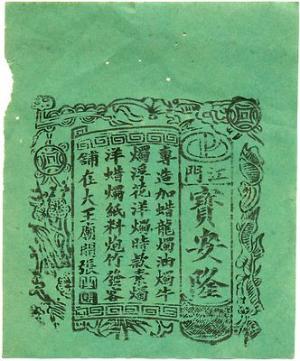 江門
寶安隆
專造加蜡龍燭油燭牛
燭浮花洋燭時款素燭
洋蜡燭紙料炮竹發客
舖在大王廟開張